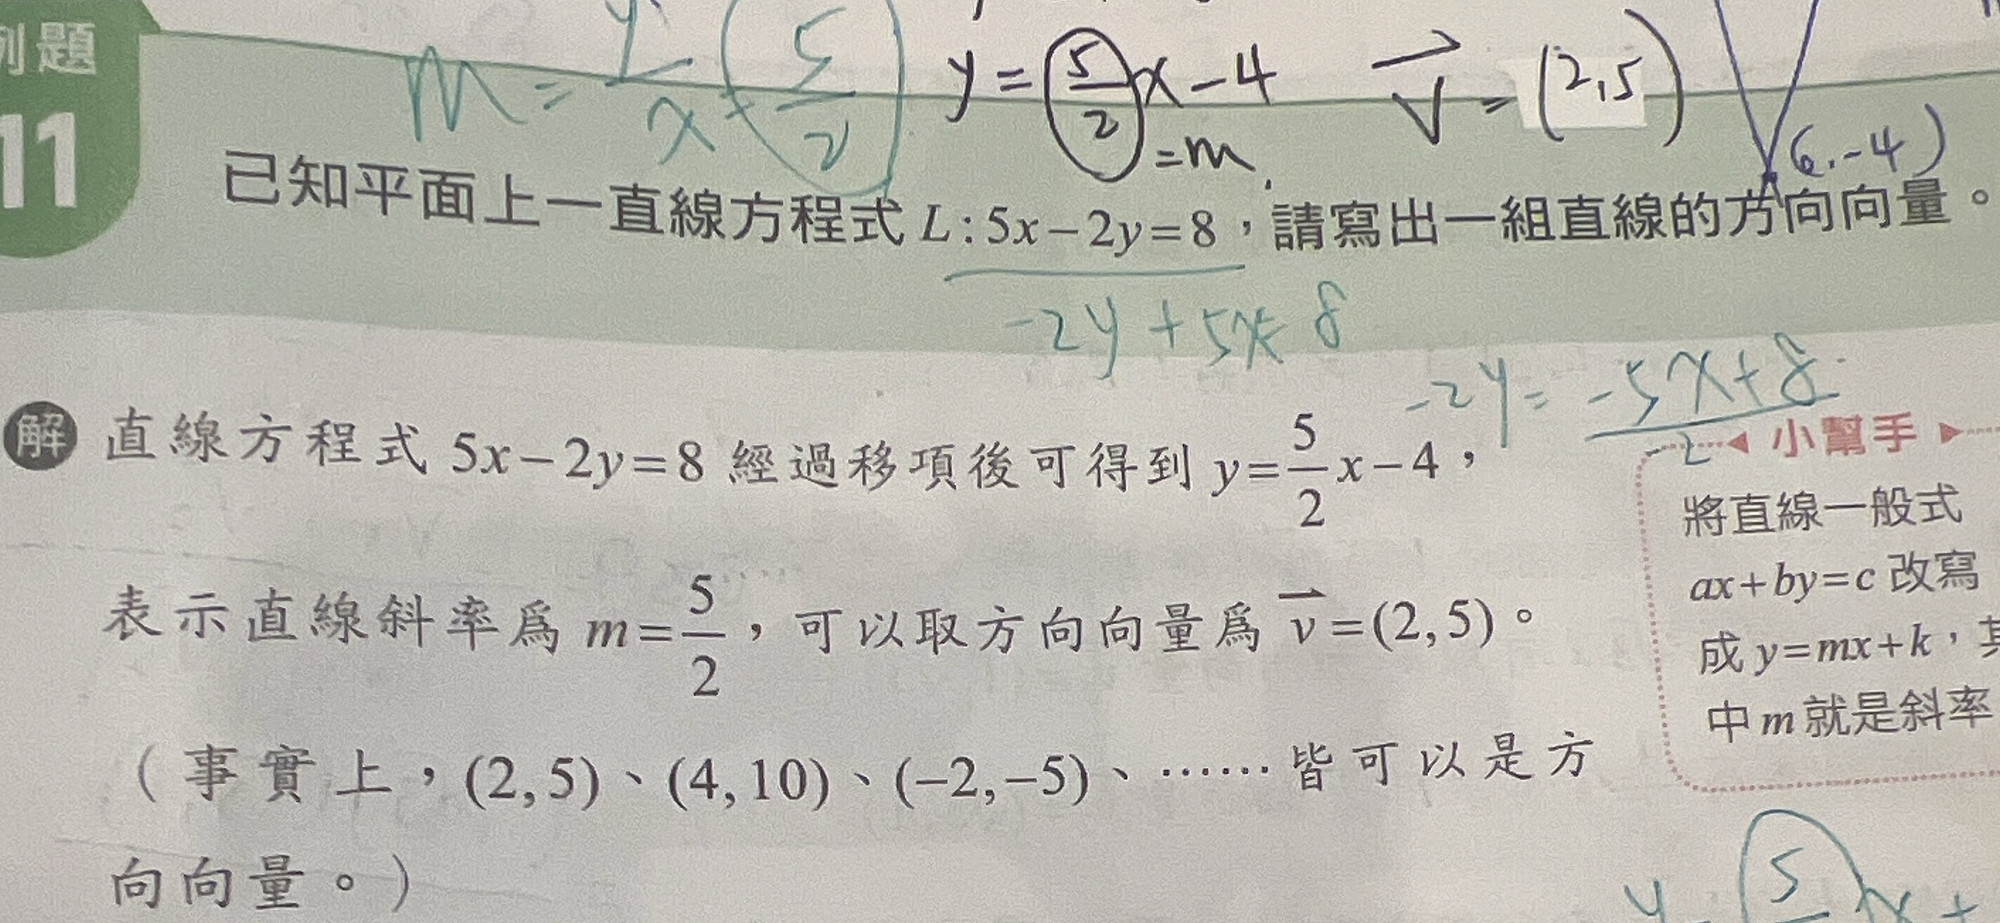 例題
11
m = y/x = 5/2
y = 5/2 x - 4
= m
v = (2,5)
(6,-4)
已知平面上一直線方程式 L:5x-2y=8,請寫出一組直線的方向向量。
-2y+5x=8
-2y = -5x+8
2
解 直線方程式 5x-2y=8 經過移項後可得到 y=5/2 x-4,
表示直線斜率為 m=5/2,可以取方向向量為 v=(2,5)。
(事實上,(2,5)、(4,10)、(-2,-5)、……皆可以是方
向向量。)
小幫手
將直線一般式
ax+by=c 改寫
成 y=mx+k,其
中 m 就是斜率